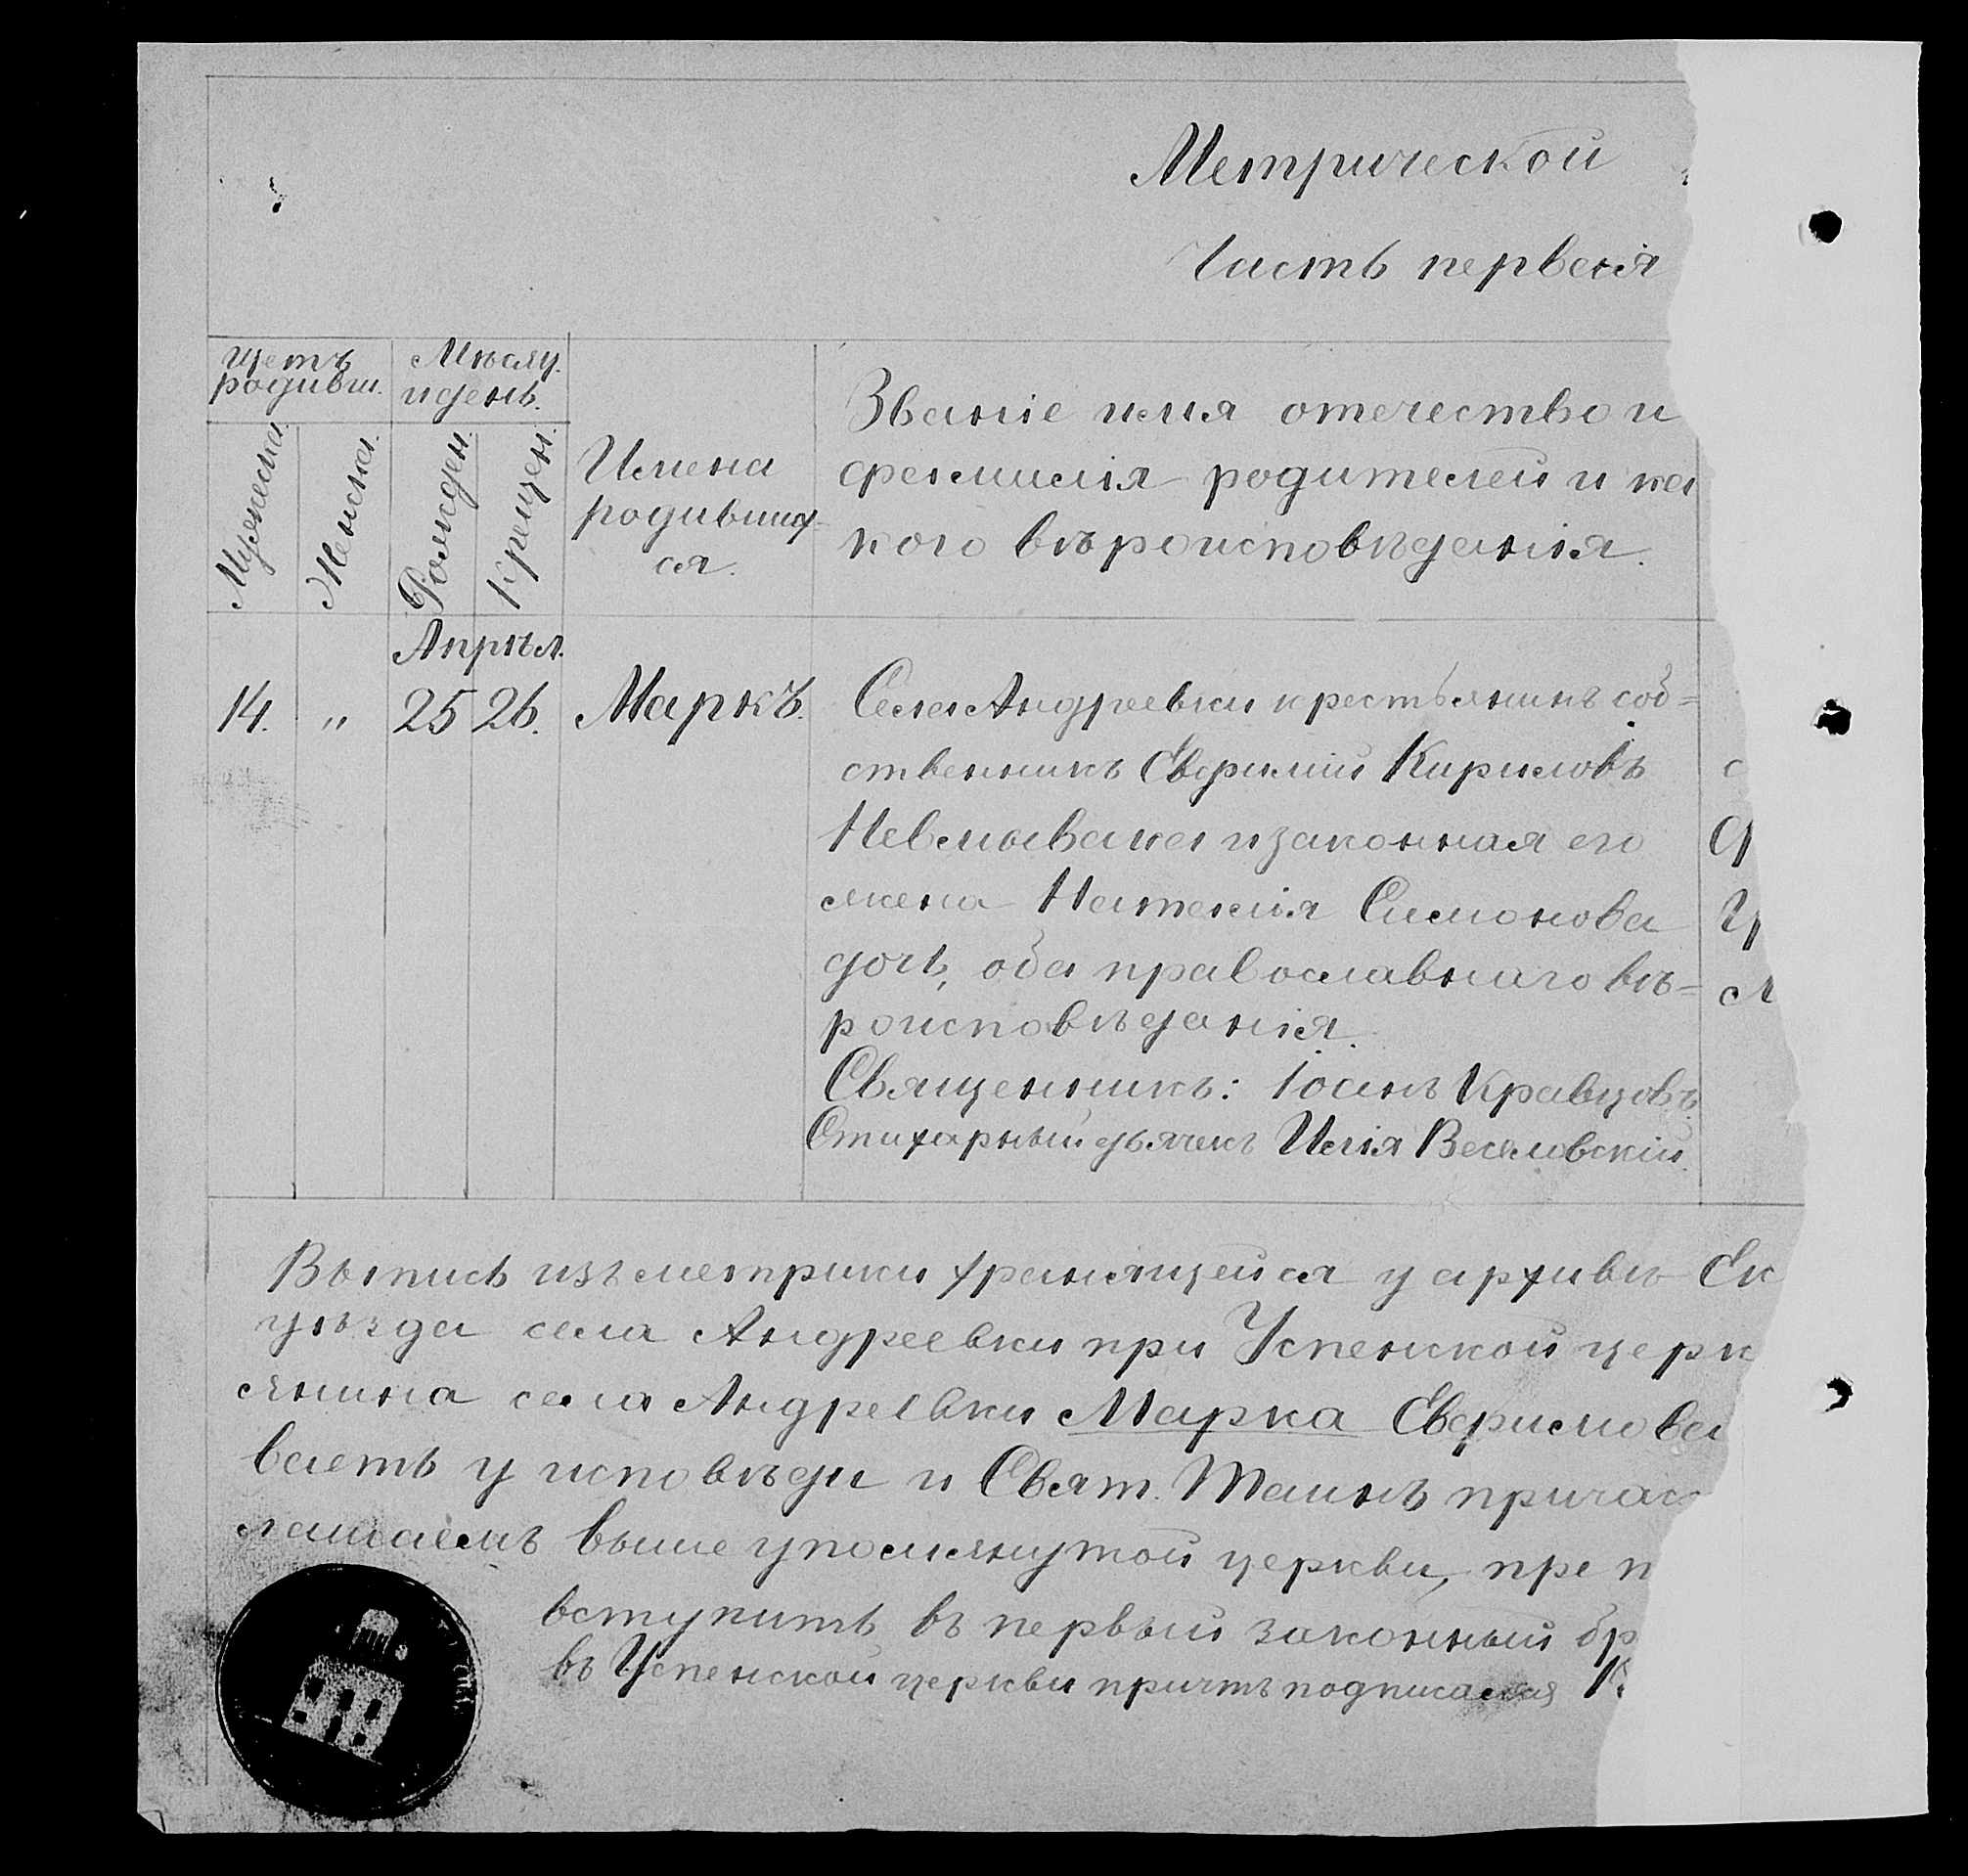 Метрической
Часть первая
Щетъ
родивш.
Мѣсяц.
и день.
Мужеска.
Женска.
Рожден.
Крещен.
Имена
родивших-
ся.
Званіе имя отечество и
фамилія родителей и ка
кого вѣроисповѣданія.
Апрѣл.
14. „ 25 26. Маркъ.
Села Андреевки крестьянинъ соб=
ственникъ Евфимій Кириловъ
Невмывака и законная его
жена Наталія Симонова
дочь, оба православнаго вѣ=
роисповѣданія.
Священникъ: Іоанъ Кравцовъ
Стихарный дьячекъ Илія Веселовскій.
Выпись изъ метрики хранящейся у архивѣ Ек
уѣзда села Андреевки при Успенской церк
янина села Андреевки Марка Евфимова
ваетъ у исповѣди и Свят. Таинъ причас
лашаемъ выше упомянутой церкви, пре п
вступить въ первый законный бр
въ Успенской церкви причтъ подписался